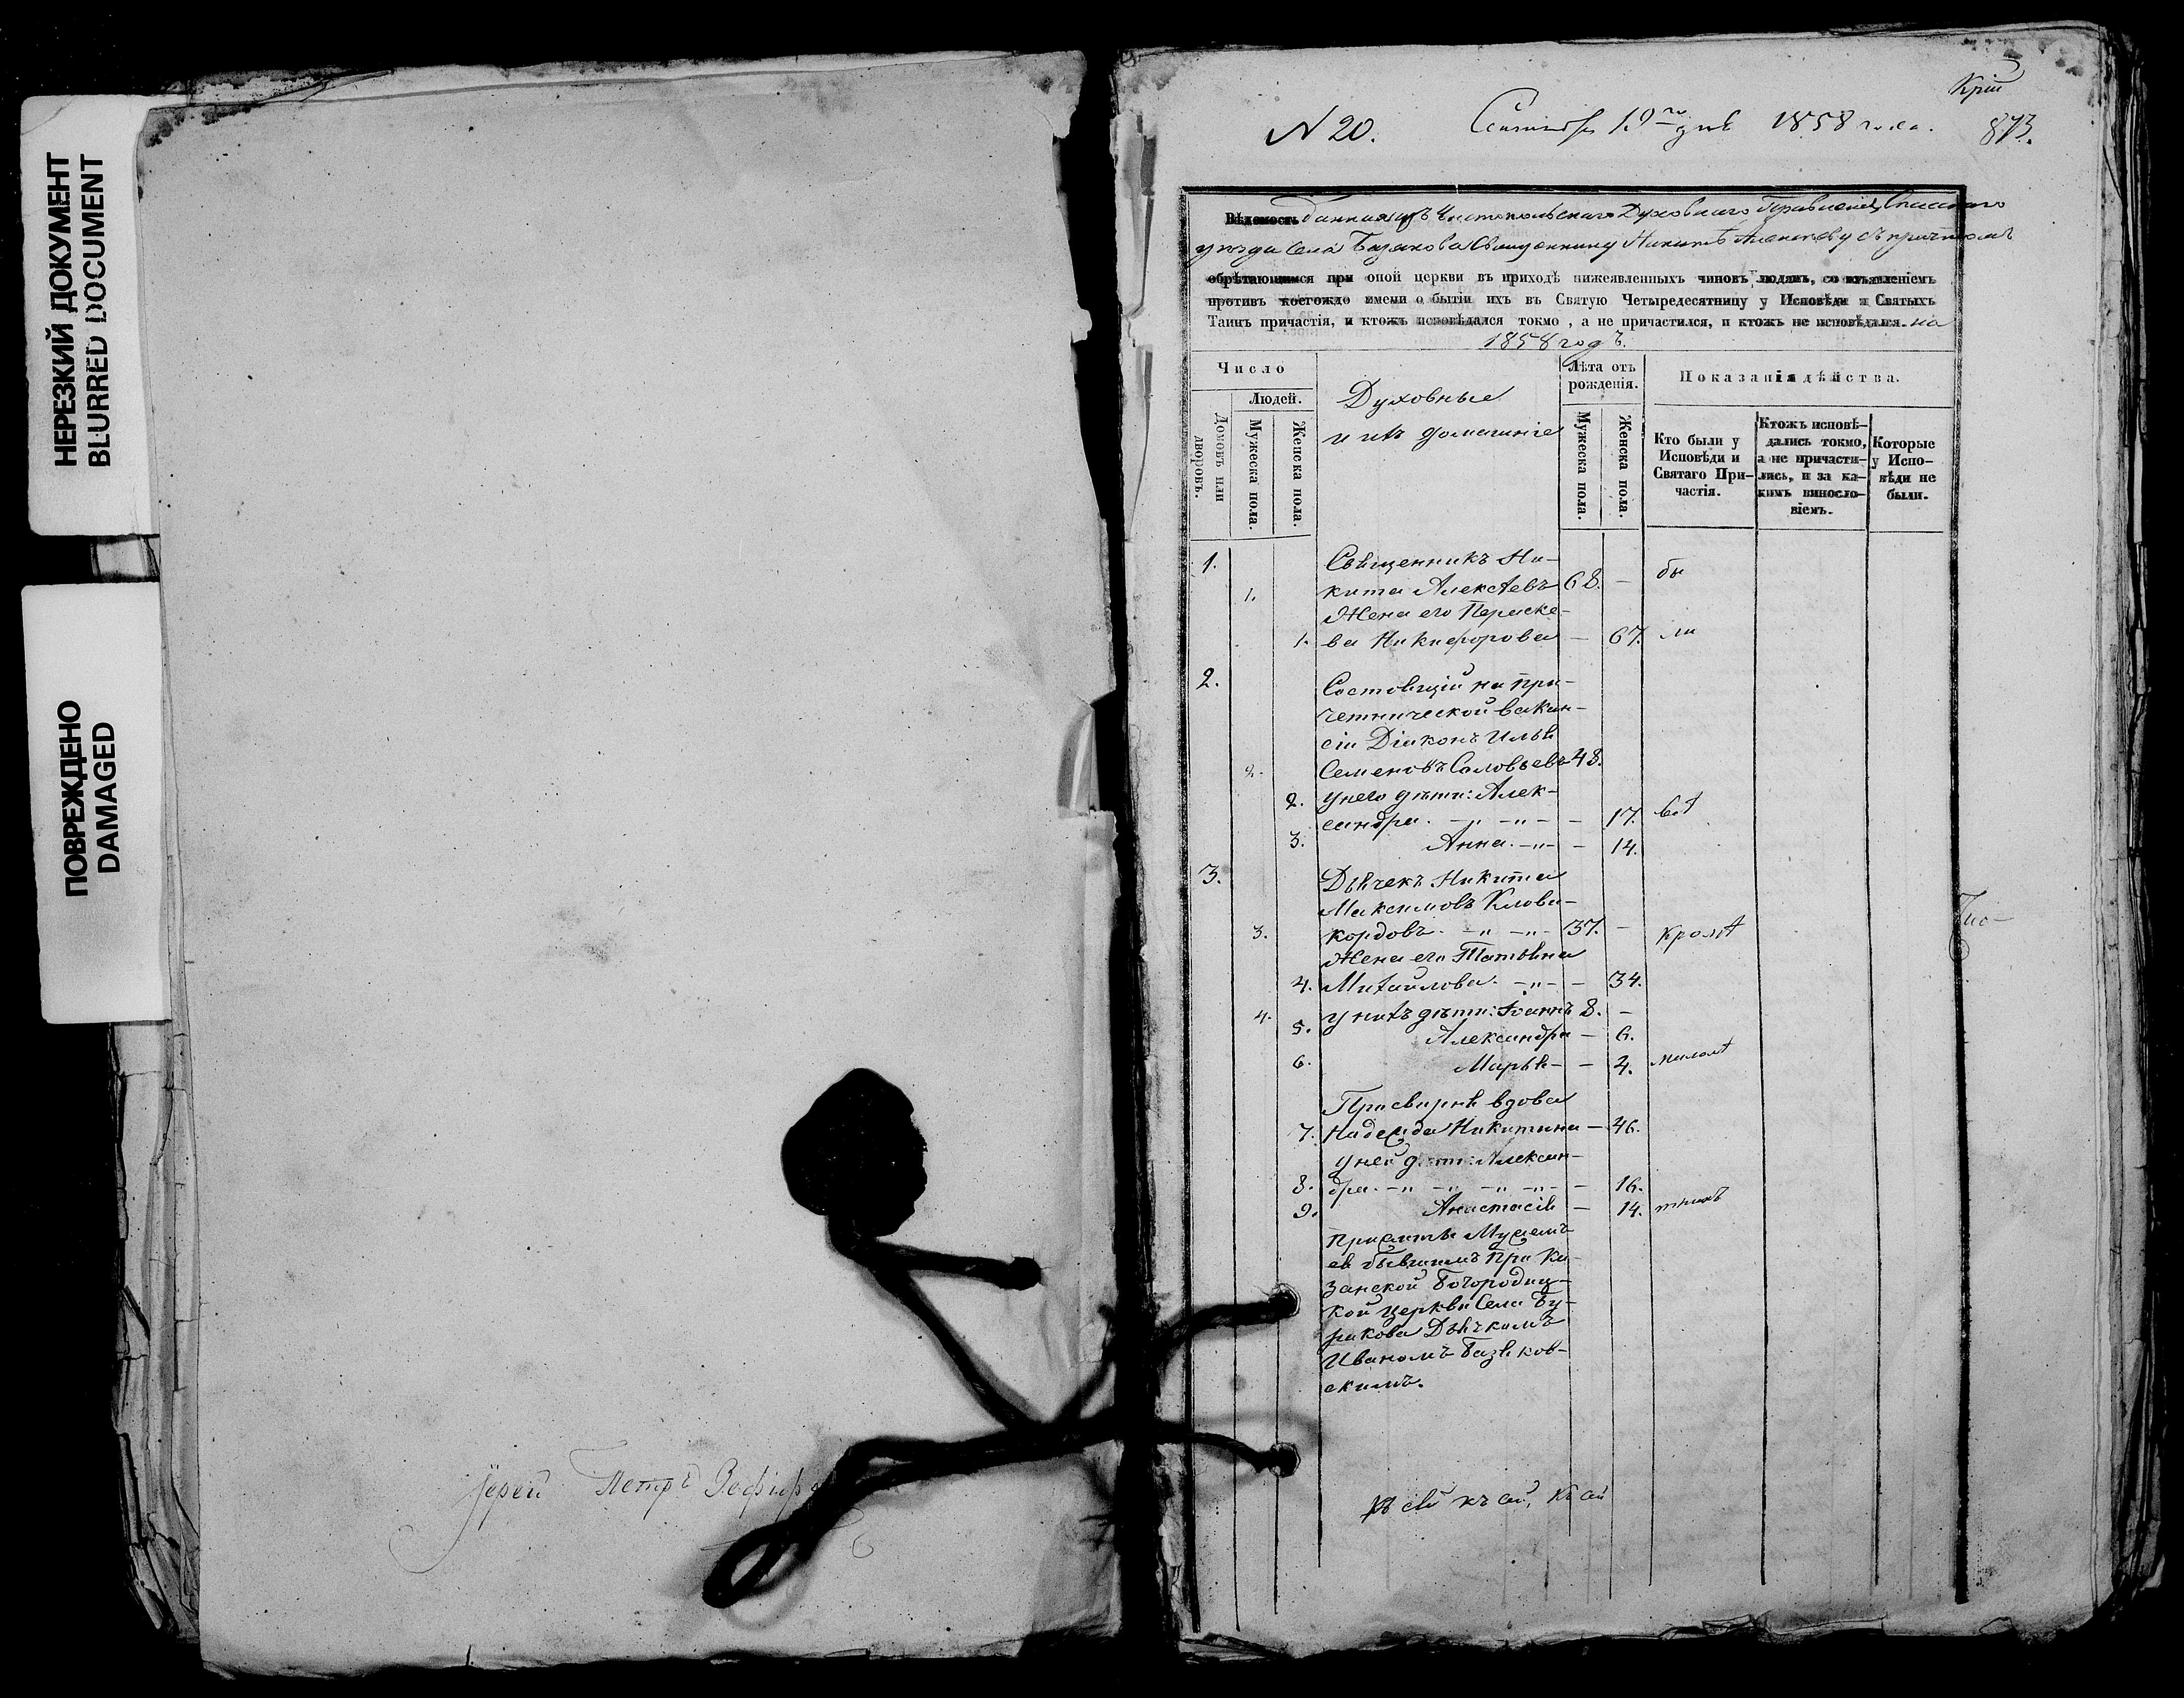 НЕРЕЗКИЙ ДОКУМЕНТ
BLURRED DOCUMENT
ПОВРЕЖДЕНО
DAMAGED
Іерей Петръ
N 20. 19го дня 1858 года. 873.
Вѣдомость данная изъ Чистопольскаго Духовнаго Правленія Спасскаго
уѣзда села Базякова Священнику Никитѣ Алексѣеву съ причтомъ
обрѣтающимся при оной церкви въ приходѣ нижеявленныхъ чиновъ людямъ, со изъявленіемъ
противъ коегождо имени о бытіи ихъ въ Святую Четыредесятницу у Исповѣди и Святыхъ
Таинъ причастія, и ктожъ исповѣдался токмо, а не причастился, и ктожъ не исповѣдался. на
1858 годъ.
Число
Людей.
Домовъ или дворовъ.
Мужеска пола.
Женска пола.
Духовные
и ихъ домашніе
Лѣта отъ рожденія.
Мужеска пола.
Женска пола.
Показанія дѣйства.
Кто были у Исповѣди и Святаго При-частія.
Ктожъ исповѣ-дались токмо, а не причасти-лись, и за ка-кимъ винosло-віемъ.
Которые у Испо-вѣди не были.
1. Священникъ Ни-
1. кита Алексѣевъ 68. — бы
Жена его Параске-
1. ва Никифорова — 67. ли
2. Состоящій на при-
четнической вакан-
сіи Діаконъ Илья
2. Семеновъ Соловьевъ 48.
2. у него дѣти: Алек-
сандра. — 17. всѣ
3. Анна. — 14.
3. Дьячекъ Никита
Максимовъ Клави-
3. кордовъ. 37. — кромѣ
Жена его Татьяна
4. Михайлова. — 34.
4. у нихъ дѣти: Іоаннъ 8. —
5. Александра — 6.
6. Марья — 4.
Просвирня вдова
7. Надежда Никитина — 46.
у ней дѣти: Алексан-
8. дра. — 16.
9. Анастасія — 14.
прижиты Мужемъ
ея бывшимъ при Ка-
занской Богородиц-
кой церкви Села Бу-
ракова Дьячкомъ
Иваномъ Базяков-
скимъ.